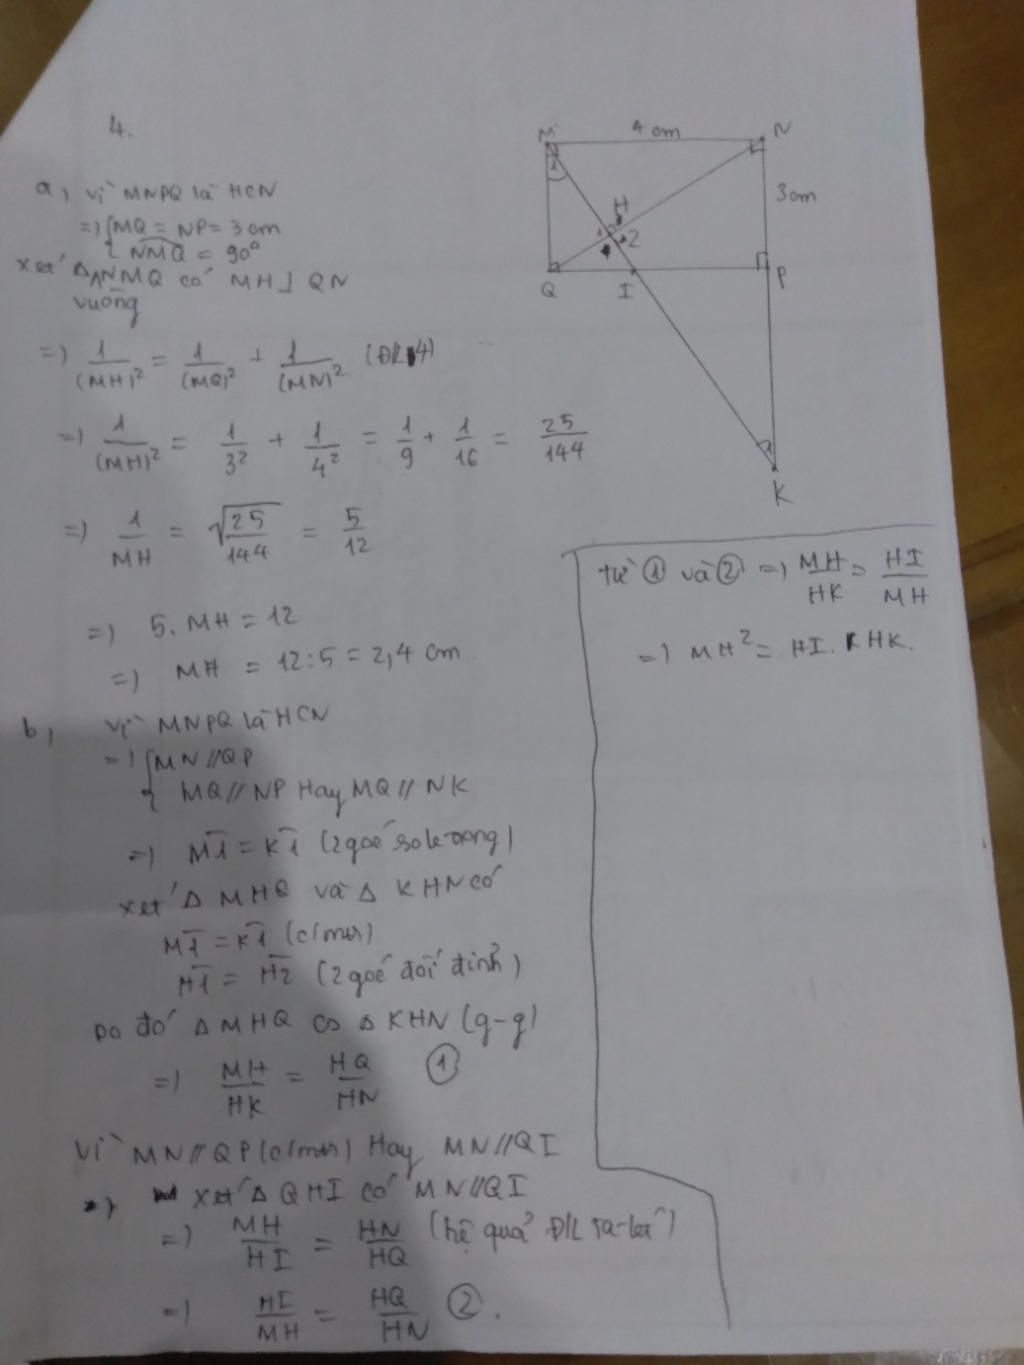 4.
M
4 cm
N
3cm
1
H
1
2
Q
I
P
K
a, Vì MNPQ là HCN
=> { MQ = NP = 3 cm
{ NMQ = 90°
xét Δ NMQ có MH ⊥ QN
vuông
=> 1/(MH)² = 1/(MQ)² + 1/(MN)² (ĐL 4)
=> 1/(MH)² = 1/3² + 1/4² = 1/9 + 1/16 = 25/144
=> 1/MH = √25/144 = 5/12
=> 5. MH = 12
=> MH = 12:5 = 2,4 cm
b, Vì MNPQ là HCN
=> { MN // QP
{ MQ // NP Hay MQ // NK
=> M1 = K1 (2 góc so le trong)
xét Δ MHQ và Δ KHN có
M1 = K1 (c/mtr)
H1 = H2 (2 góc đối đỉnh)
Do đó Δ MHQ ∽ Δ KHN (g-g)
=> MH/HK = HQ/HN ①
Vì MN // QP (c/mtr) Hay MN // QI
xét Δ QHI có MN // QI
=> MH/HI = HN/HQ (hệ quả Đ/L Ta-lét)
=> HI/MH = HQ/HN ②.
từ ① và ② => MH/HK = HI/MH
=> MH² = HI. HK.